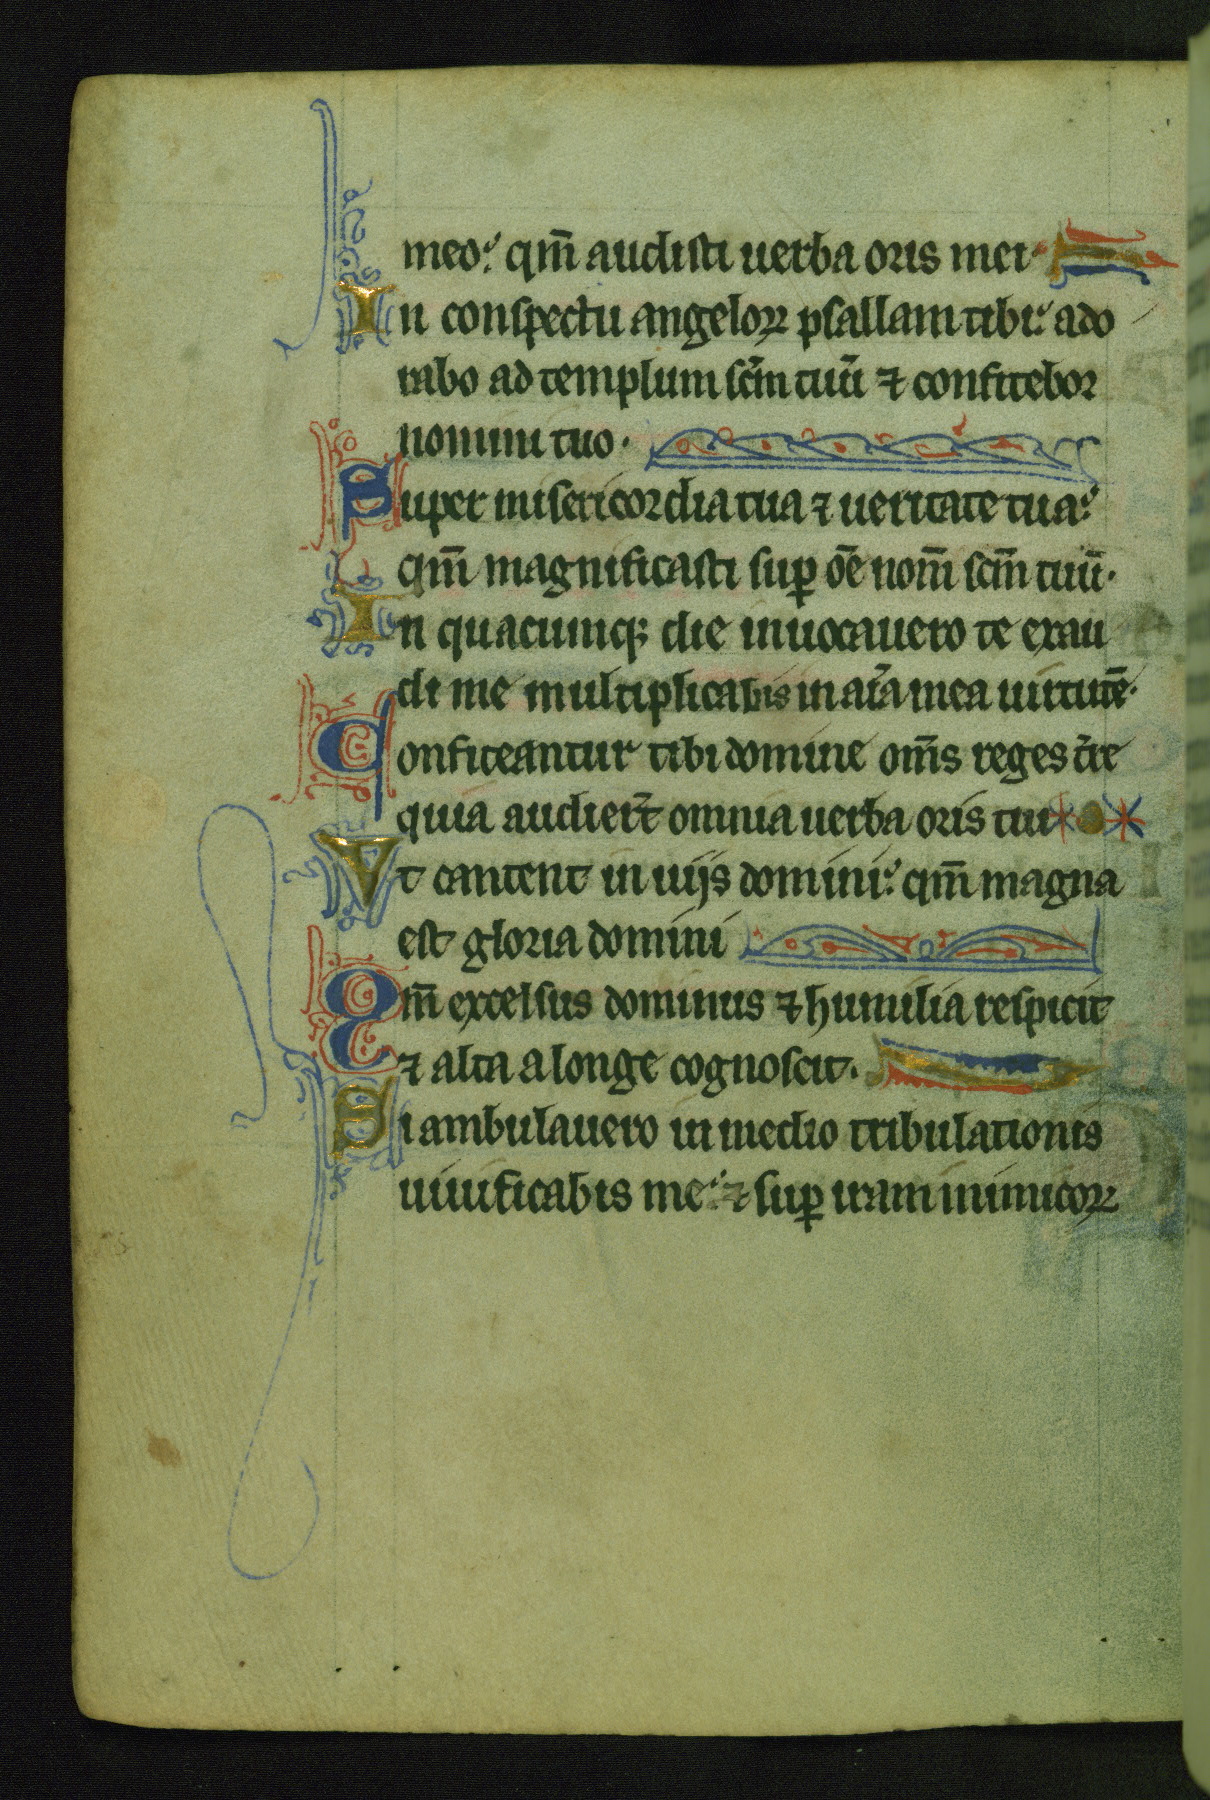 meo: qm̄ audisti uerba oris mei
In conspectu angeloꝝ psallam tibi: ado
rabo ad templum sc̄m tuū ⁊ confitebor
nomini tuo.
Super misericordia tua ⁊ ueritate tua:
qm̄ magnificasti suꝑ oē nom̄ sc̄m tuū.
In quacumqꝫ die inuocauero te exau
di me multiplicabis in aīa mea uirtutē.
Confiteantur tibi domine om̄s reges t̄re
quia audier̄t omnia uerba oris tui
Et cantent in uijs domini: qm̄ magna
est gloria domini
Qm̄ excelsus dominus ⁊ humilia respicit
⁊ alta a longe cognoscit.
Si ambulauero in medio tribulationis
uiuificabis me: ⁊ suꝑ iram inimicoꝝ